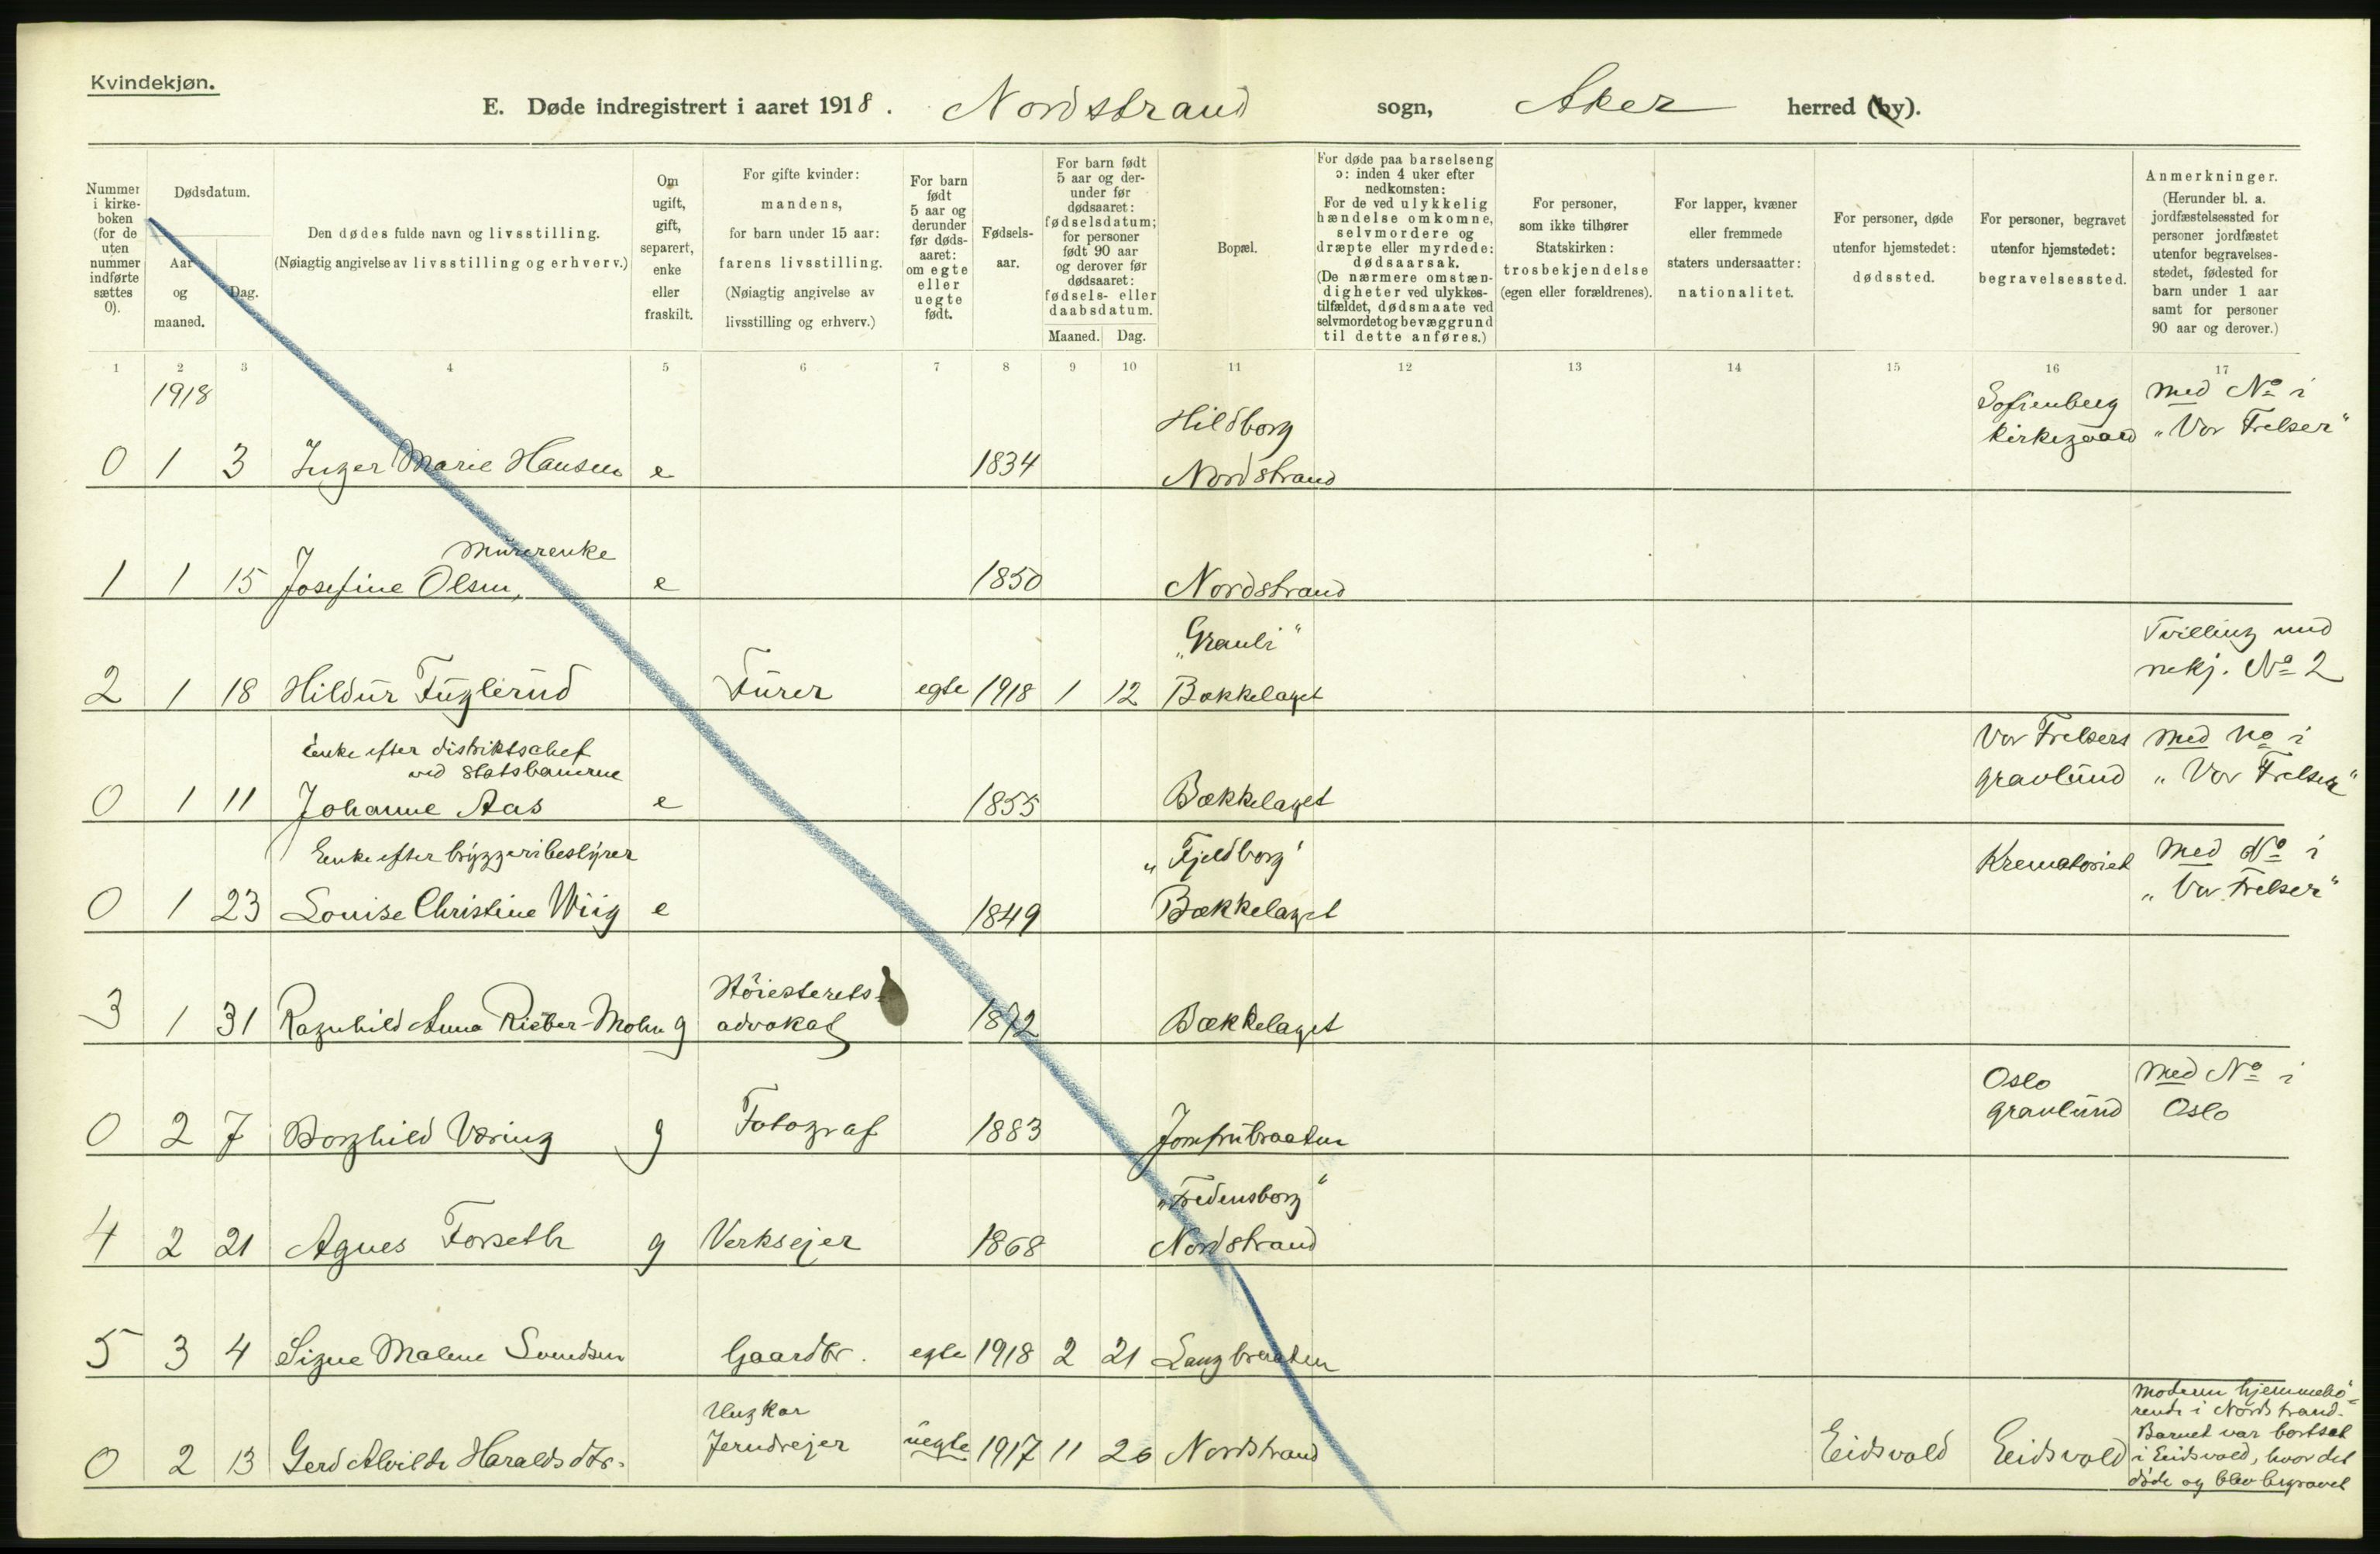 Kvindekjøn.
E. Døde indregistrert i aaret 1918. Nordstrand sogn, Aker herred (by).
Nummer i kirkeboken (for de uten nummer indførte sættes 0).
Dødsdatum.
Aar og maaned.
Dag.
Den dødes fulde navn og livsstilling.
(Nøiagtig angivelse av livsstilling og erhverv.)
Om ugift, gift, separert, enke eller fraskilt.
For gifte kvinder: mandens, for barn under 15 aar: farens livsstilling. (Nøiagtig angivelse av livsstilling og erhverv.)
For barn født 5 aar og derunder før dødsaaret: om egte eller uegte født.
Fødselsaar.
For barn født 5 aar og derunder før dødsaaret: fødselsdatum; for personer født 90 aar og derover før dødsaaret: fødsels- eller daabsdatum.
Maaned. Dag.
Bopæl.
For døde paa barselseng ɔ: inden 4 uker efter nedkomsten: For de ved ulykkelig hændelse omkomne, selvmordere og dræpte eller myrdede: dødsaarsak. (De nærmere omstændigheter ved ulykkestilfældet, dødsmaate ved selvmordet og bevæggrund til dette anføres.)
For personer, som ikke tilhører Statskirken: trosbekjendelse (egen eller forældrenes).
For lapper, kvæner eller fremmede staters undersaatter: nationalitet.
For personer, døde utenfor hjemstedet: dødssted.
For personer, begravet utenfor hjemstedet: begravelsessted.
Anmerkninger. (Herunder bl. a. jordfæstelsessted for personer jordfæstet utenfor begravelsesstedet, fødested for barn under 1 aar samt for personer 90 aar og derover.)
1 2 3 4 5 6 7 8 9 10 11 12 13 14 15 16 17
1918
Hildborg Sofienberg Med No i
0 1 3 Inger Marie Hansen e 1834 Nordstrand kirkegaard "Vor Frelser"
Murerenke
1 1 15 Josefine Olsen, e 1850 Nordstrand
"Granli" Tvilling med
2 1 18 Hildur Fuglerud Furer egte 1918 1 12 Bækkelaget mkj. No 2
Enke efter distriktschef Vor Frelsers Med No i
ved statsbanerne gravlund "Vor Frelser"
0 1 11 Johanne Aas e 1855 Bækkelaget
Enke efter bryggeribestyrer "Fjeldborg" Krematoriet Med No i
0 1 23 Louise Christine Wiig e 1849 Bækkelaget "Vor Frelser"
Höiesterets-
3 1 31 Ragnhild Anna Rieber-Mohn g advokat 1872 Bækkelaget
Oslo Med No i
0 2 7 Borghild Væring g Fotograf 1883 Jomfrubraaten gravlund Oslo
"Fredensborg"
4 2 21 Agnes Forseth g Verksejer 1868 Nordstrand
5 3 4 Signe Malene Svendsen Gaardbr. egte 1918 2 21 Langbraaten
Ungkar Moderen hjemmehö-
rende i Nordstrand.
0 2 13 Gerd Alvilde Haraldsdtr. Jerndrejer uegte 1917 11 26 Nordstrand Eidsvold Eidsvold Barnet var bortsat
i Eidsvold, hvor det
döde og blev begravet